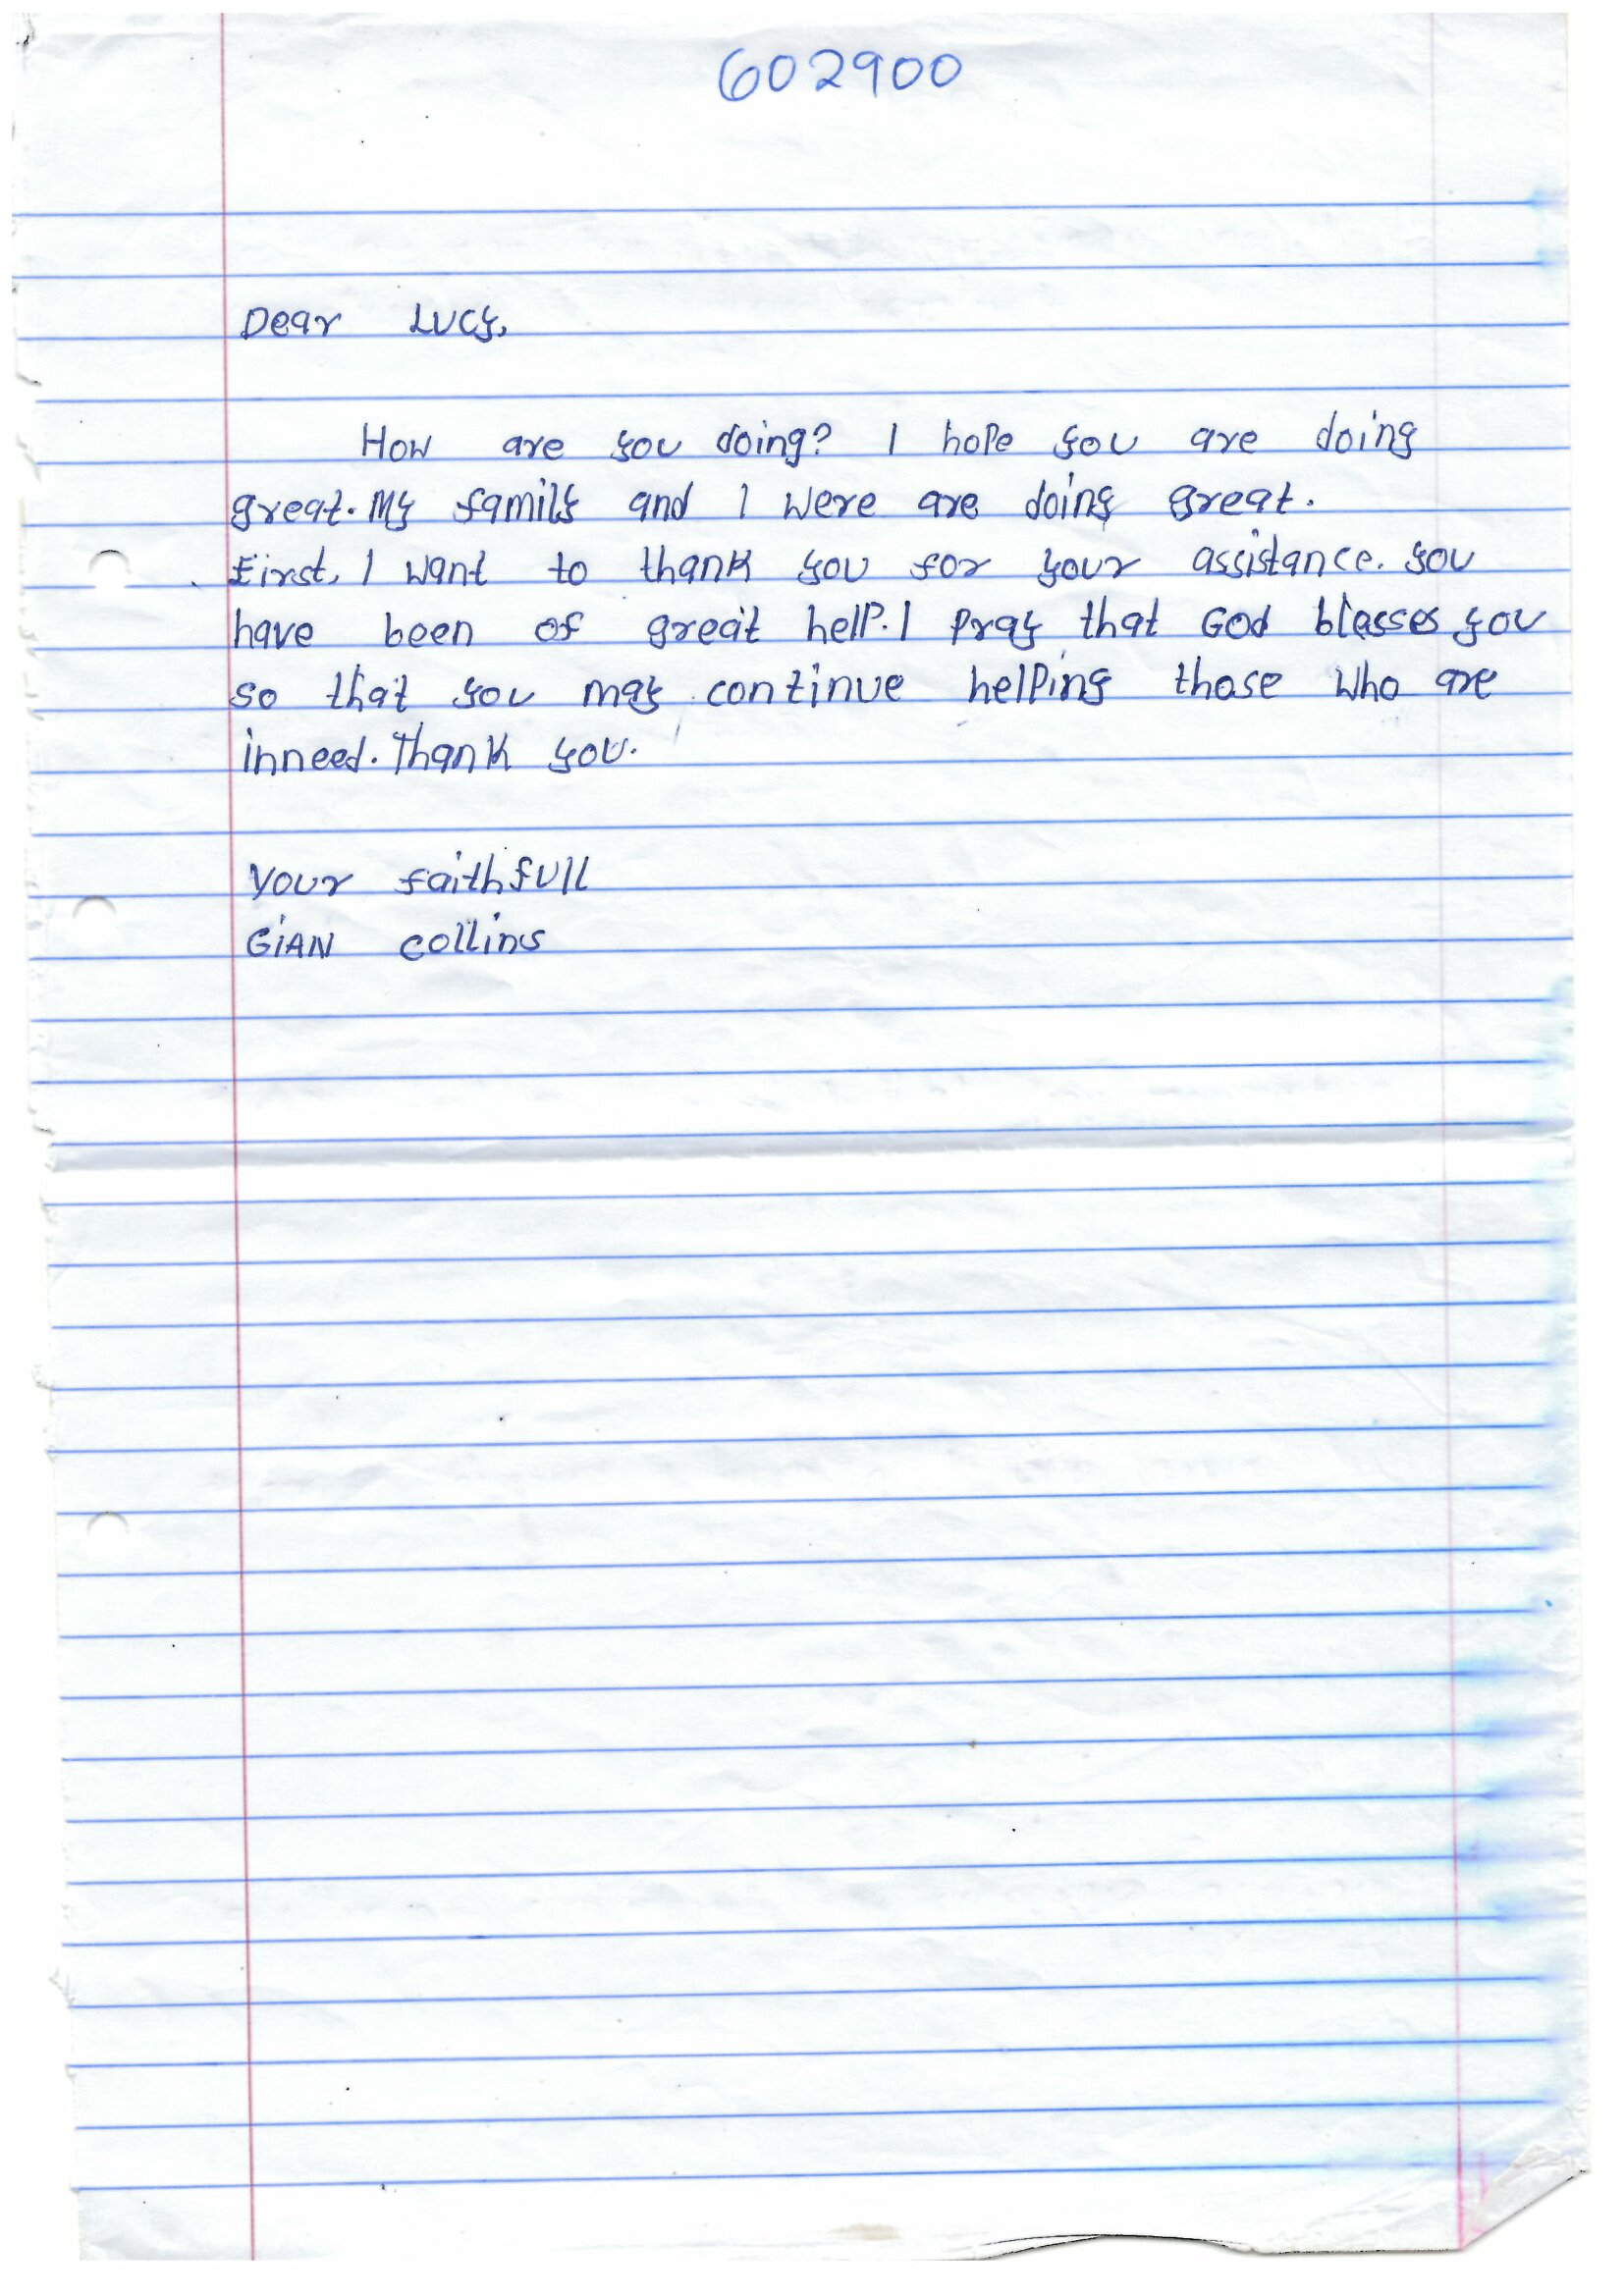 602900
Dear Lucy,
How are you doing? I hope you are doing
great. My family and I were are doing great.
First, I want to thank you for your assistance. you
have been of great help. I pray that God blesses you
so that you may continue helping those who are
inneed. Thank you.
Your faithfull
GIAN collins